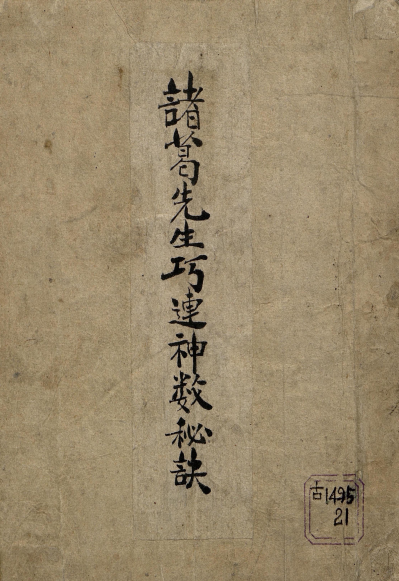 諸葛先生巧連神数秘訣
古1495
21